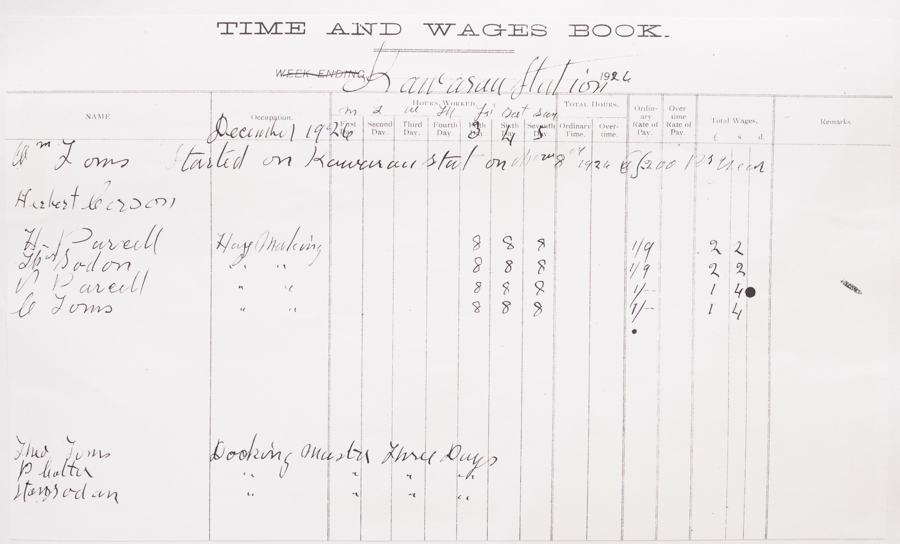 TIME AND WAGES BOOK.
WEEK ENDING Kawarau Station 1924
NAME. Occupation. Hours Worked. TOTAL HOURS. Ordinary Rate of Pay. Over time Rate of Pay. Total Wages. Remarks.
M T W Th Fri Sat Sun
First Day. Second Day. Third Day. Fourth Day. Day. Sixth Day. Seventh Day. Ordinary Time. Overtime. £ s. d.
December 1924 3 4 5
Wm Toms Started on Kawarau Stat on 8th 1924 @ £200 Per Year
Herbert
H Purcell Hay Making 8 8 8 1/9 2 2
" " 8 8 8 1/9 2 2
P Purcell " " 8 8 8 1/- 1 4
C Toms " " 8 8 8 1/- 1 4
Toms Docking Muster Three Days
P " " " "
" " " "